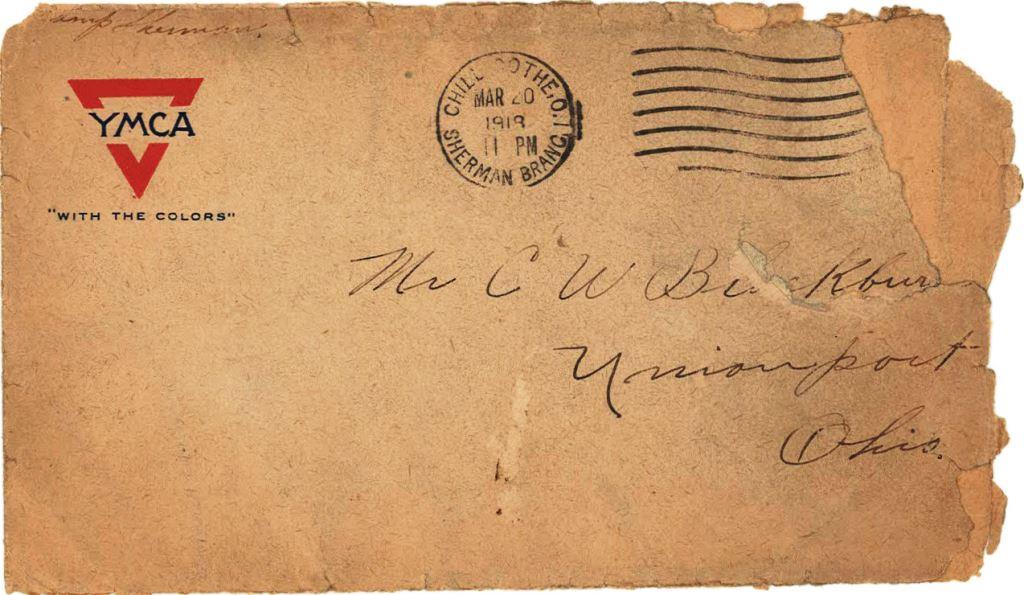 Camp Sherman.
YMCA
"WITH THE COLORS"
CHILLICOTHE, O.
MAR 20
1918
11 PM
SHERMAN BRANCH
Mr C W Blackburn
Unionport
Ohio.